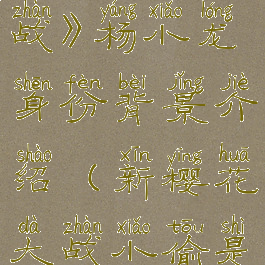 zhàn yáng xiǎo lóng
战》杨小龙
shēn fèn bèi jǐng jiè
身份背景介
shào xīn yīng huā
绍（新樱花
dà zhàn xiǎo tōu shì
大战小偷是